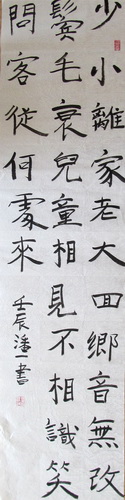 少小離家老大回鄉音無改
鬢毛衰兒童相見不相識笑
問客從何處來
壬辰潘一書